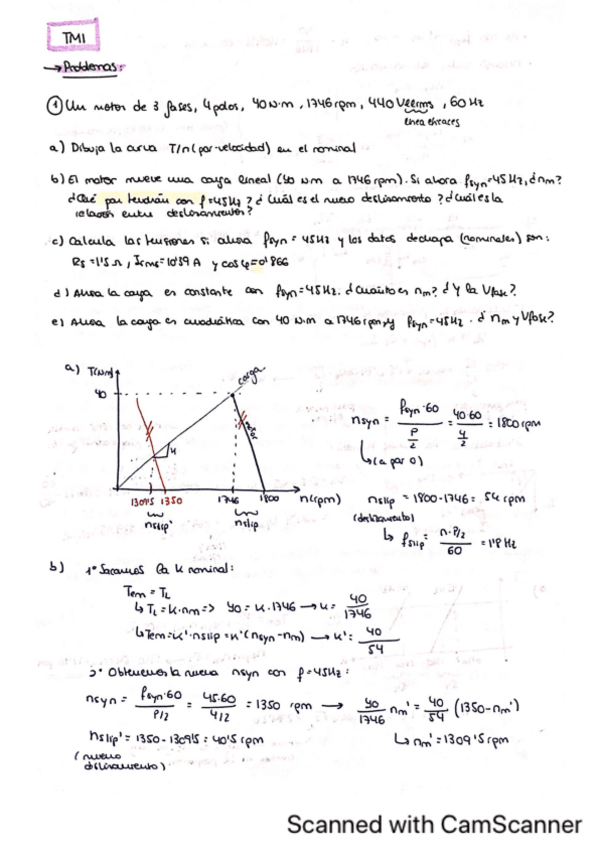 TM1
→ Problemas:
① Un motor de 3 fases, 4 polos, 40 N·m, 1746 rpm, 440 Veerms, 60 Hz
línea eficaces
a) Dibuja la curva T/n (par-velocidad) en el nominal
b) El motor mueve una carga lineal (40 N·m a 1746 rpm). Si ahora fsyn=45Hz, ¿nm?
¿Qué par tendrán con f=45Hz? ¿Cuál es el nuevo deslizamiento? ¿Cuál es la
relación entre deslizamientos?
c) Calcula las tensiones si ahora fsyn = 45Hz y los datos de chapa (nominales) son:
Rs = 1'5 Ω, Irms = 10'39 A y cosφ=0'866
d) Ahora la carga es constante con fsyn=45Hz. ¿Cuánto es nm? ¿Y la Vfase?
e) Ahora la carga es cuadrática con 40 N·m a 1746 rpm y fsyn=45Hz. ¿nm y Vfase?
a) T(Nm)
carga
40
motor
k
1309'5 1350 1746 1800 n(rpm)
nslip' nslip
nsyn = fsyn·60 / P/2 = 40·60 / 4/2 = 1800 rpm
↳(a par 0)
nslip = 1800-1746 = 54 rpm
(deslizamiento)
↳ fslip = n·P/2 / 60 = 1'8 Hz
b) 1º Sacamos la k nominal:
Tem = TL
↳ TL = k·nm => 40 = k·1746 → k = 40/1746
↳ Tem = k'·nslip = k'(nsyn-nm) → k' = 40/54
2º Obtenemos la nueva nsyn con f=45Hz:
nsyn = fsyn·60 / P/2 = 45·60 / 4/2 = 1350 rpm → 40/1746 nm' = 40/54 (1350-nm')
nslip' = 1350-1309'5 = 40'5 rpm ↳ nm' = 1309'5 rpm
(nuevo
deslizamiento)
Scanned with CamScanner